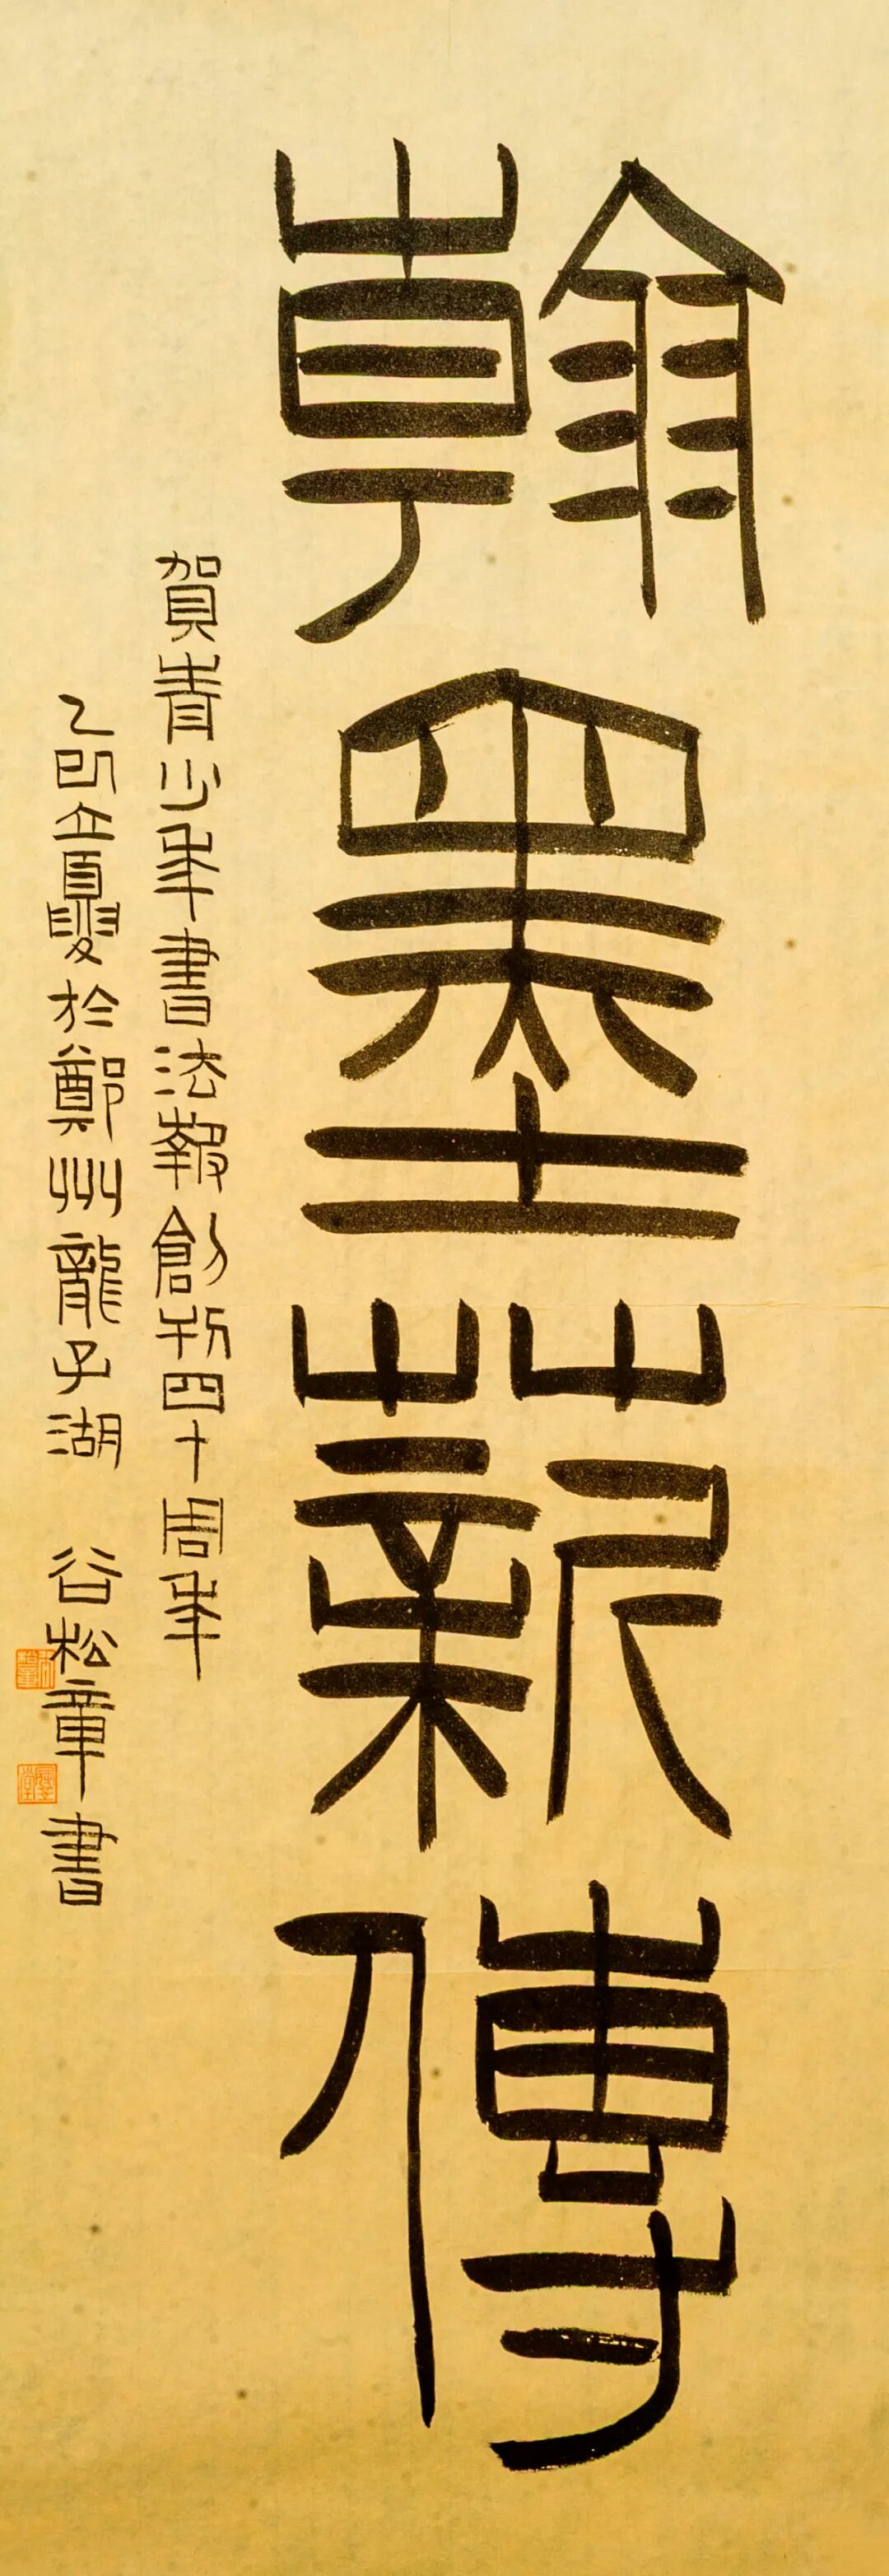 翰墨薪傳
賀青少年書法報創刊四十周年
乙巳立夏於鄭州龍子湖 谷松章書